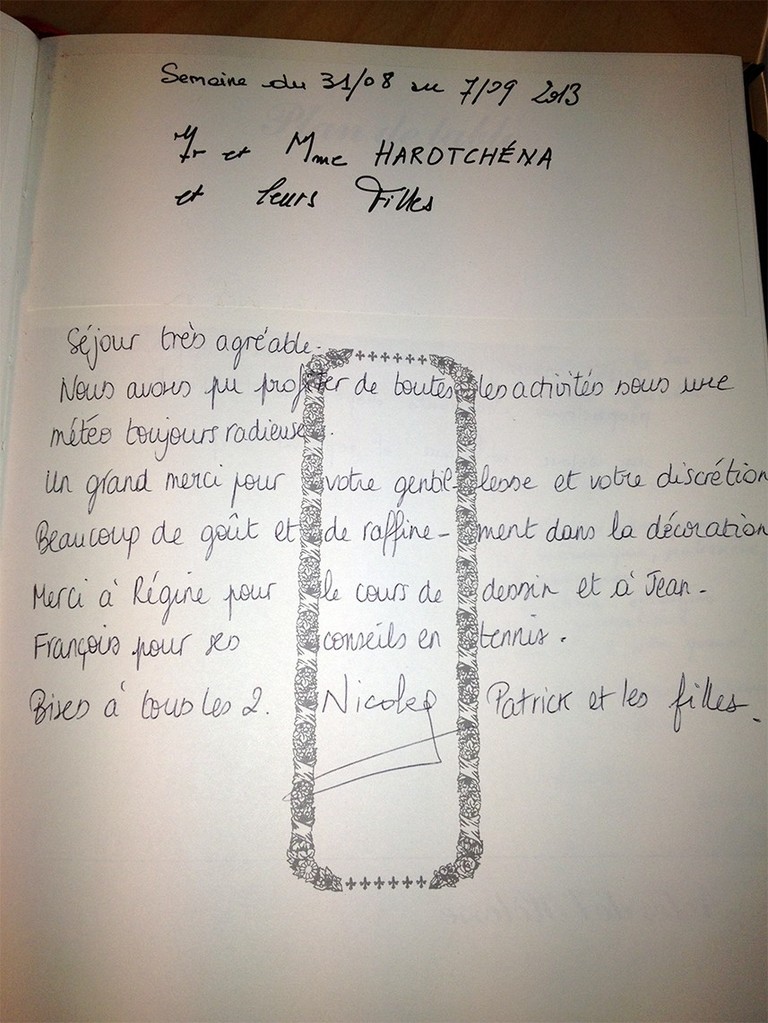 Semaine du 31/08 au 7/09 2013
Mr et Mme HAROTCHÉNA
et leurs Filles
Séjour très agréable.
Nous avons pu profiter de toutes les activités sous une
météo toujours radieuse.
Un grand merci pour votre gentil-lesse et votre discrétion
Beaucoup de goût et de raffine-ment dans la décoration
Merci à Régine pour le cours de dessin et à Jean-
François pour ses conseils en tennis.
Bises à tous les 2. Nicole Patrick et les filles.